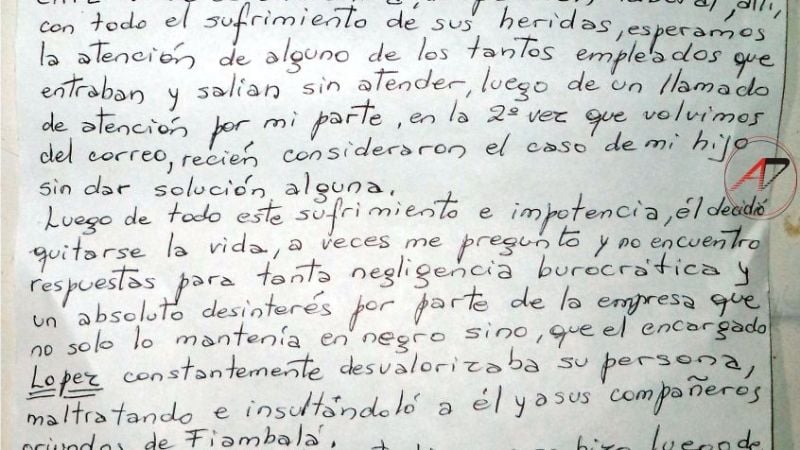 con todo el sufrimiento de sus heridas, esperamos
la atención de alguno de los tantos empleados que
entraban y salian sin atender, luego de un llamado
de atención por mi parte, en la 2ª vez que volvimos
del correo, recién consideraron el caso de mi hijo
sin dar solución alguna.
Luego de todo este sufrimiento e impotencia, él decidió
quitarse la vida, a veces me pregunto y no encuentro
respuestas para tanta negligencia burocrática y
un absoluto desinterés por parte de la empresa que
no solo lo mantenía en negro sino, que el encargado
Lopez constantemente desvalorizaba su persona,
maltratando e insultándoló a él y a sus compañeros
oriundos de Fiambalá.